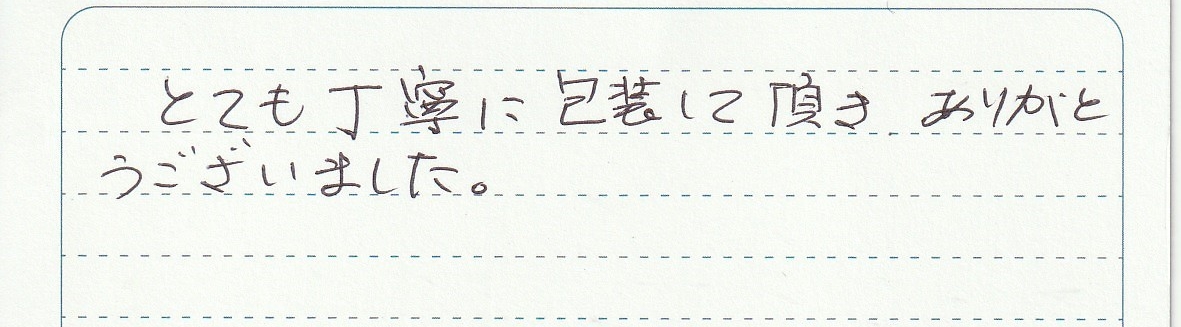 とても丁寧に包装して頂き ありがと
うございました。